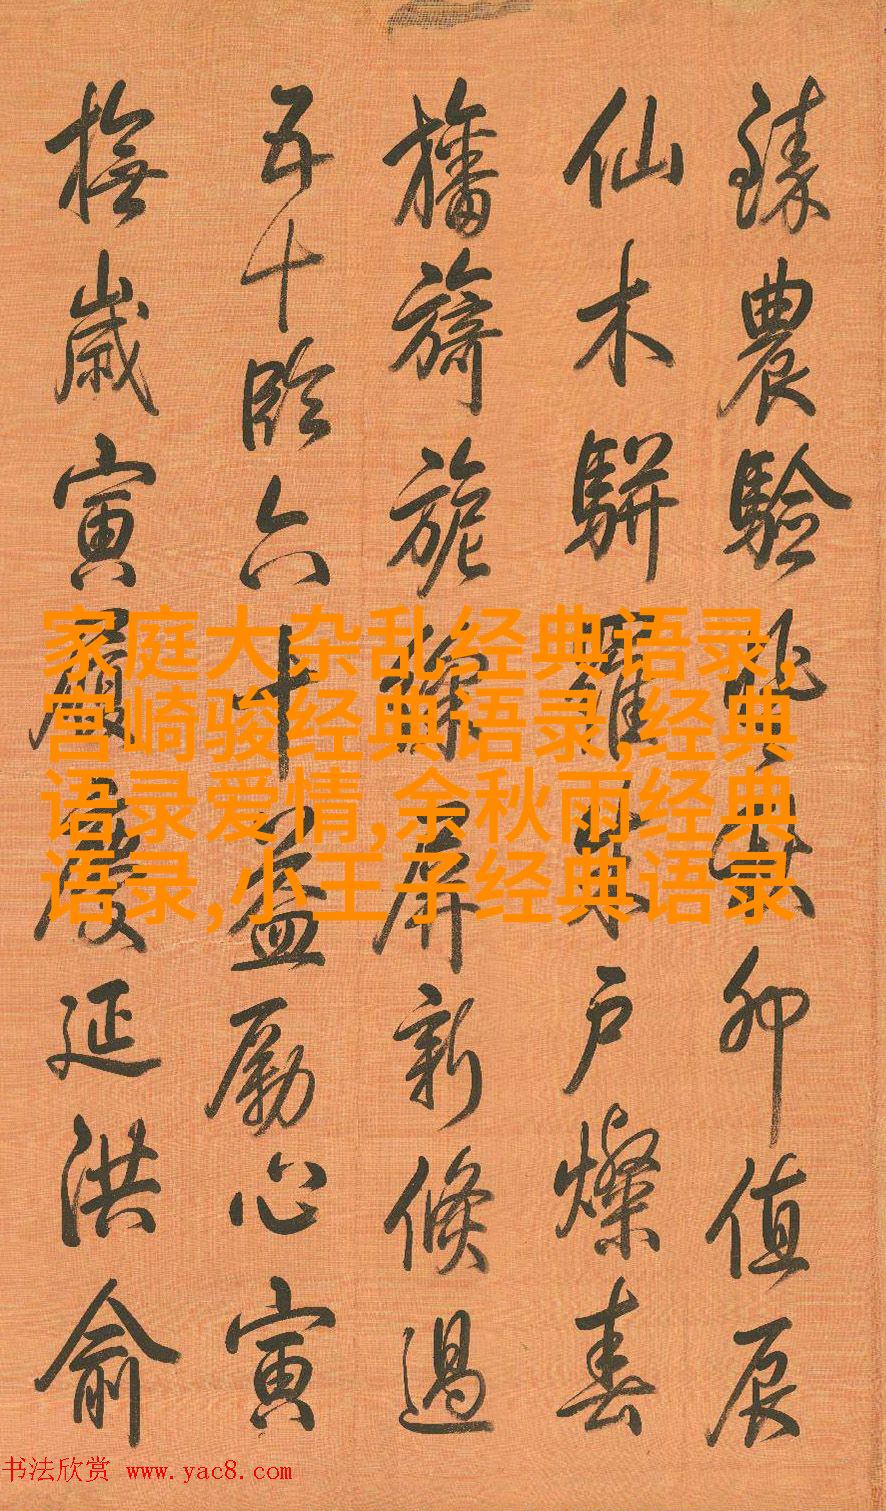 臻農驗其卯值辰
仙木駢羅朱戶燦春
旛旖旎屏新倏過
五十臨六十益勵心寅
撫歲寅履慶延洪俞
家庭大杂乱经典语录,
宫崎骏经典语录,经典
语录爱情,余秋雨经典
语录,小王子经典语录
书法欣赏 www.yac8.com